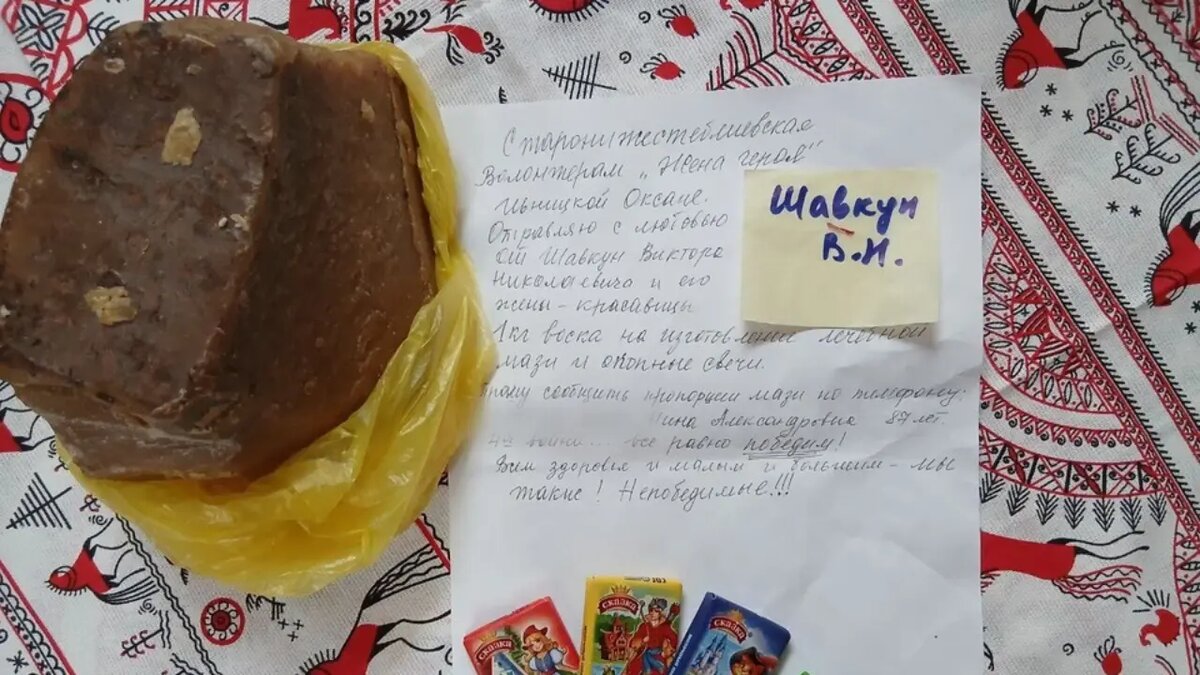 Старонижестеблиевская
Волонтерам „Жена героя"
Ильницкой Оксане.
Отправляю с любовью
От Шавкун Виктора
Николаевича и его
жены - красавицы
1кг воска на изготовление лечебной
мази и окопные свечи.
Прошу сообщить пропорции мази по телефону:
Нина Александровна 87 лет.
4я война... все равно победим!
Всем здоровья и малым и большим - мы
такие! Непобедимые!!!
Шавкун
В.Н.
сказка
сказка
сказка